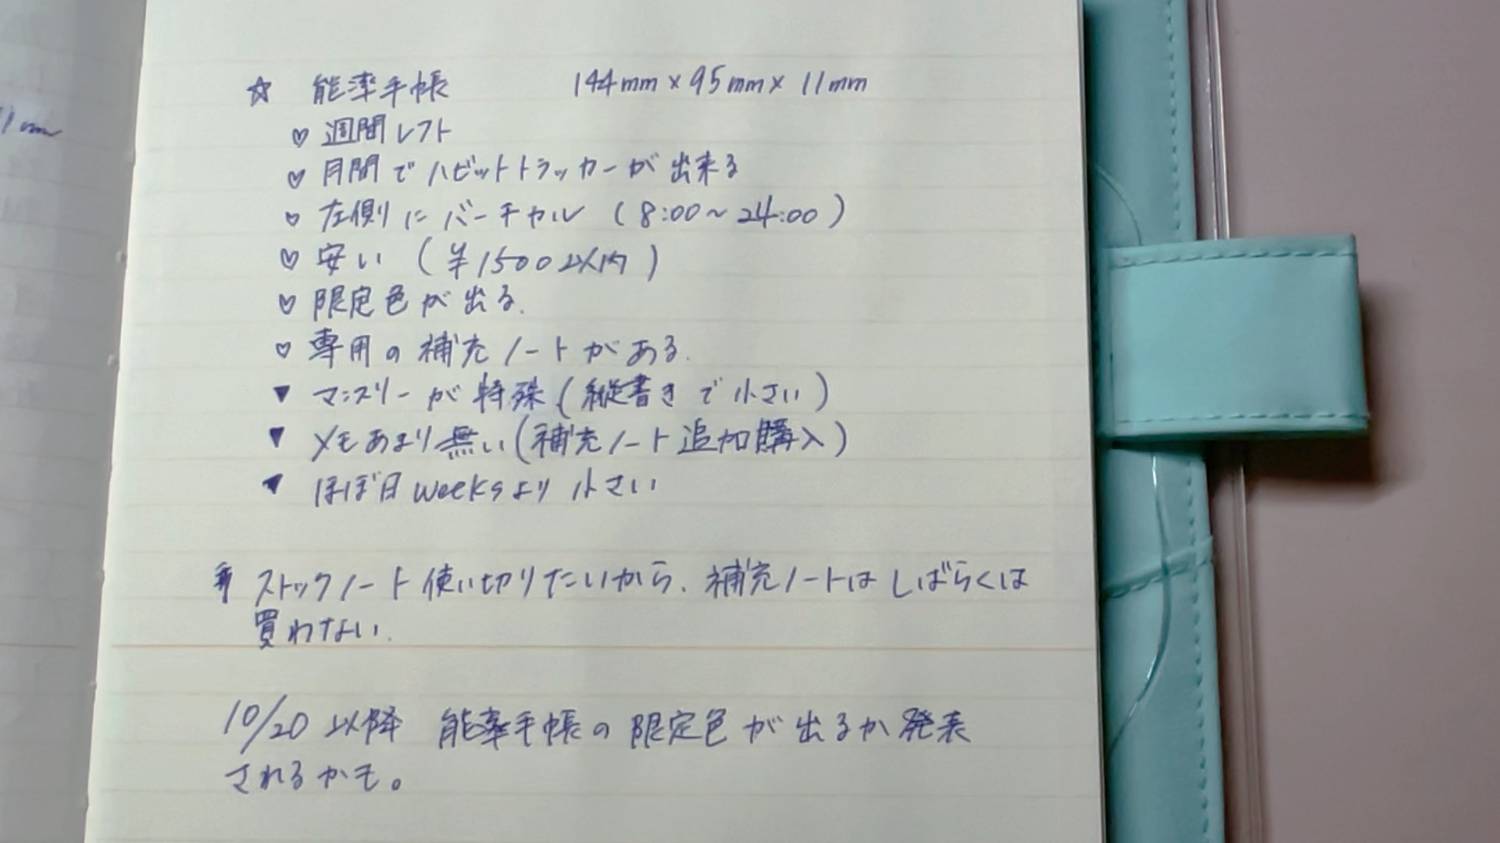 11mm
☆ 能率手帳 144mm×95mm×11mm
♡ 週間レフト
♡ 月間でハビットトラッカーが出来る
♡ 左側にバーチカル（8:00～24:00）
♡ 安い（¥1500以内）
♡ 限定色が出る.
♡ 専用の補充ノートがある.
▼ マンスリーが特殊（縦書きで小さい）
▼ メモあまり無い（補充ノート追加購入）
▼ ほぼ日weeksより小さい
ストックノート使い切りたいから、補充ノートはしばらくは
買わない.
10/20以降 能率手帳の限定色が出るか発表
されるかも。